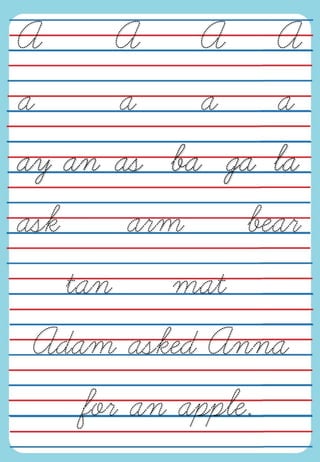 A A A A
a a a a
ay an as ba ga la
ask arm bear
tan mat
Adam asked Anna
for an apple.